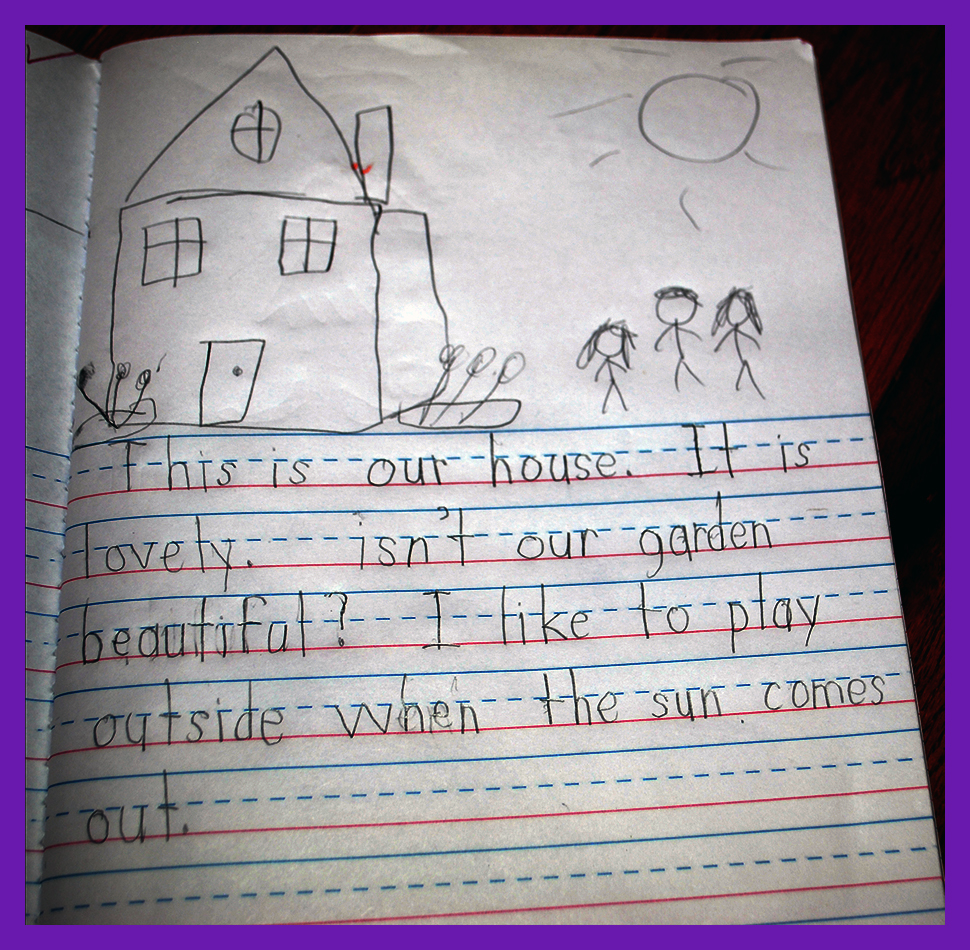 This is our house. It is
lovely. isn't our garden
beautiful? I like to play
outside when the sun comes
out.